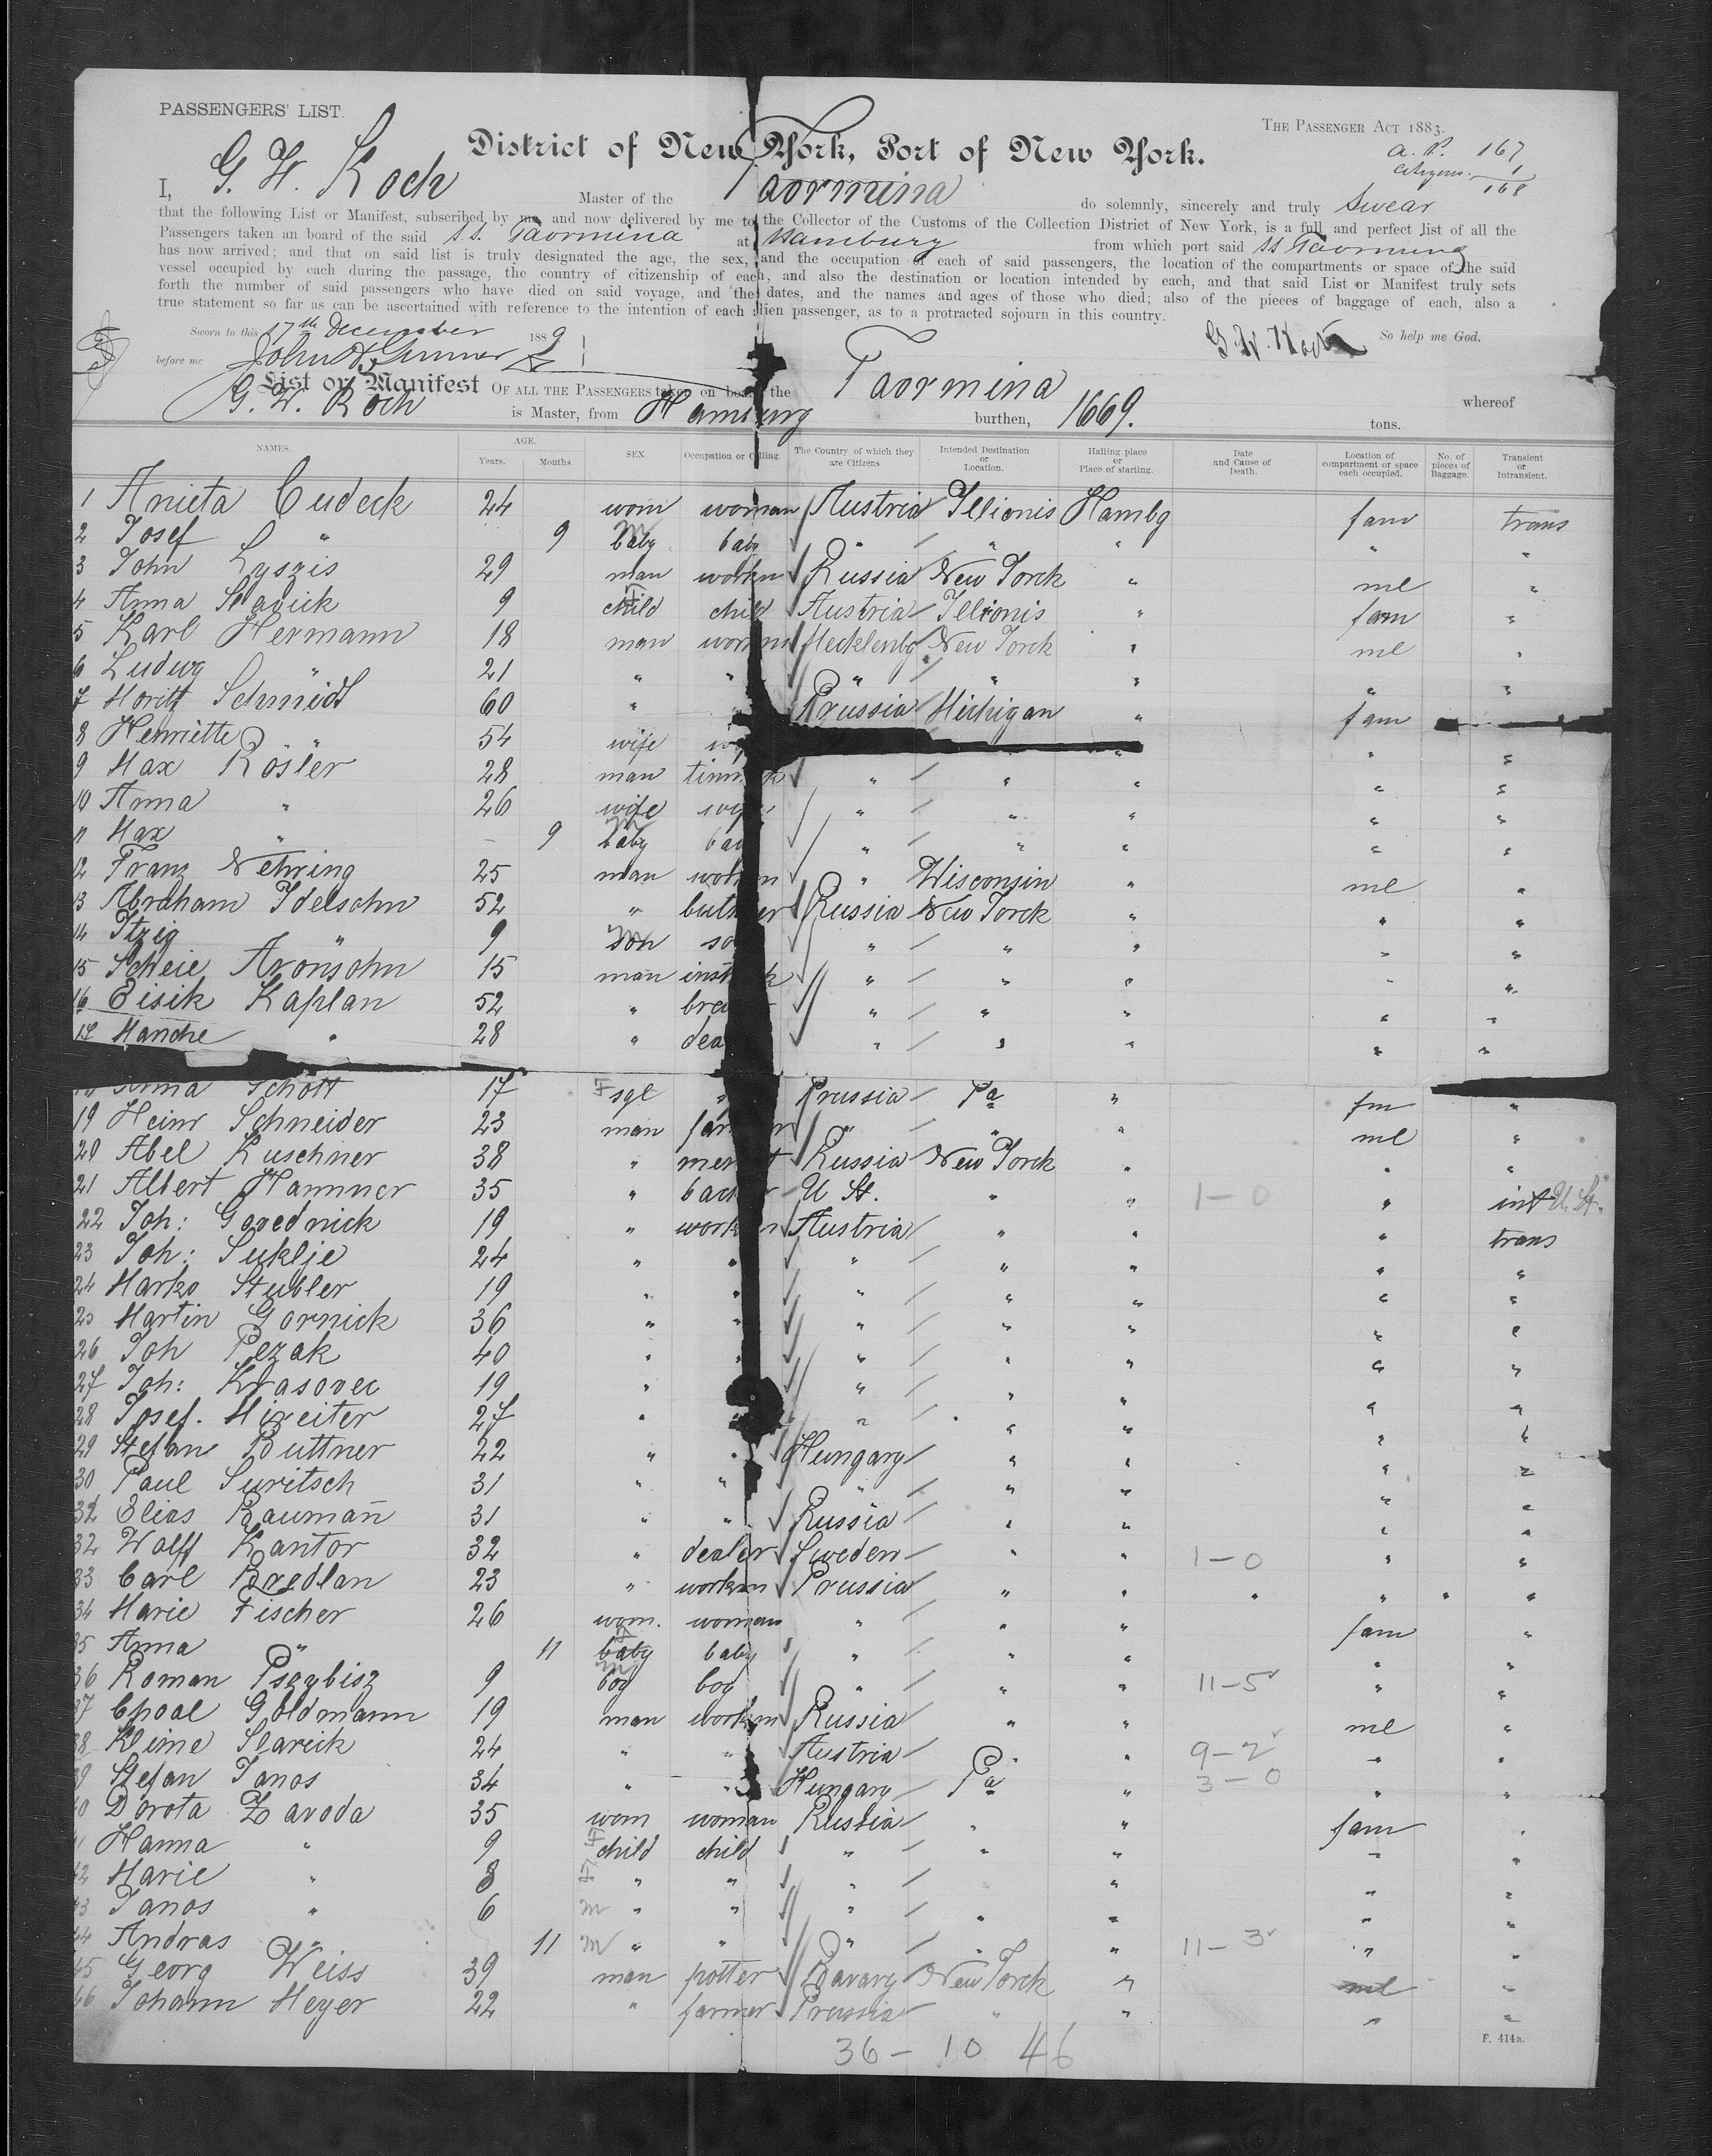 PASSENGERS' LIST.
THE PASSENGER ACT 1883.
District of New York, Port of New York.
a. P. 167
citizens. 1
168
I, G. W. Koch Master of the Taormina do solemnly, sincerely and truly swear
that the following List or Manifest, subscribed by me, and now delivered by me to the Collector of the Customs of the Collection District of New York, is a full and perfect list of all the
Passengers taken an board of the said S.S. Taormina at Hamburg from which port said SS Taormina
has now arrived; and that on said list is truly designated the age, the sex, and the occupation of each of said passengers, the location of the compartments or space of the said
vessel occupied by each during the passage, the country of citizenship of each, and also the destination or location intended by each, and that said List or Manifest truly sets
forth the number of said passengers who have died on said voyage, and the dates, and the names and ages of those who died; also of the pieces of baggage of each, also a
true statement so far as can be ascertained with reference to the intention of each alien passenger, as to a protracted sojourn in this country.
Sworn to this 17th December 1889 G. W. Koch So help me God.
before me
List or Manifest OF ALL THE PASSENGERS taken on board the Taormina whereof
G. W. Koch is Master, from Hamburg burthen, 1669. tons.
NAMES. AGE. Years. Months. SEX. Occupation or Calling. The Country of which they are Citizens Intended Destination or Location. Hailing place or Place of starting. Date and Cause of Death. Location of compartment or space each occupied. No. of pieces of Baggage. Transient or Intransient.
1 Anieta Cudeck 24 wom woman Austria Illionis Hambg fam trans
2 Josef " 9 baby m baby " " " " "
3 John Lyszis 29 man workm Russia New Yorck " ml "
4 Anna Slavick 9 child F child Austria Illionis " fam "
5 Karl Hermann 18 man workm Mecklenbg New Yorck " ml "
6 Ludwg " 21 " " " " " " "
7 Moritz Schmidt 60 " Prussia Michigan " fam
8 Henriette " 54 wife " " "
9 Max Rösler 28 man " " " " "
10 Anna " 26 wife wife " " " " "
11 Max " 9 baby m baby " " " " "
12 Franz Nehring 25 man workm " Wisconsin " ml "
13 Abraham Idelsohn 52 " butcher Russia New Yorck " " "
14 Itzig " 9 son m son " " " " "
15 Scheie Aronsohn 15 man " " " " "
16 Eisik Kaplan 52 " " " " " "
17 Manche " 28 " dealer " " " " "
Anna Schott 17 F sgl Prussia Pa " fm "
19 Heinr Schneider 23 man farmer " " " ml "
20 Abel Kuschner 38 " Russia New Yorck " " "
21 Albert Hammer 35 " U St. " " 1 – 0 " int U. St.
22 Joh: Govednick 19 " workm Austria " " " trans
23 Joh: Suklje 24 " " " " " " "
24 Marko Stubler 19 " " " " " " "
25 Martin Gornick 36 " " " " " " "
26 Joh Pezak 40 " " " " " " "
27 Joh: Krasovec 19 " " " " " " "
28 Josef. Mireiter 27 " " " " " " "
29 Stefan Buttner 22 " " Hungary " " " "
30 Paul Suritsch 31 " " " " " " "
31 Elias Baumañ 31 " " Russia " " " "
32 Wolff Kantor 32 " dealer Sweden " " 1 – 0 " "
33 Carl Bredlan 23 " workm Prussia " " " " " "
34 Marie Fischer 26 wom. woman " " " fam "
35 Anna " 11 baby F baby " " " " "
36 Roman Pszybisz 9 boy m boy " " " 11 – 5 " "
37 Choal Goldmann 19 man workm Russia " " ml "
38 Klime Slarick 24 " " Austria " " 9 – 2 " "
39 Stefan Janos 34 " " Hungary Pa " 3 – 0 " "
40 Dorota Zavoda 35 wom woman Russia " " fam "
41 Hanna " 9 F child child " " " " "
42 Marie " 8 F " " " " " "
43 Janos " 6 m " " " " " " "
44 Andras " 11 m " " " " " 11 – 3 " "
45 Georg Weiss 39 man potter Bavary New Yorck " ml "
46 Johann Meyer 22 " farmer Prussia " " " "
36 – 10 46
F. 414a.